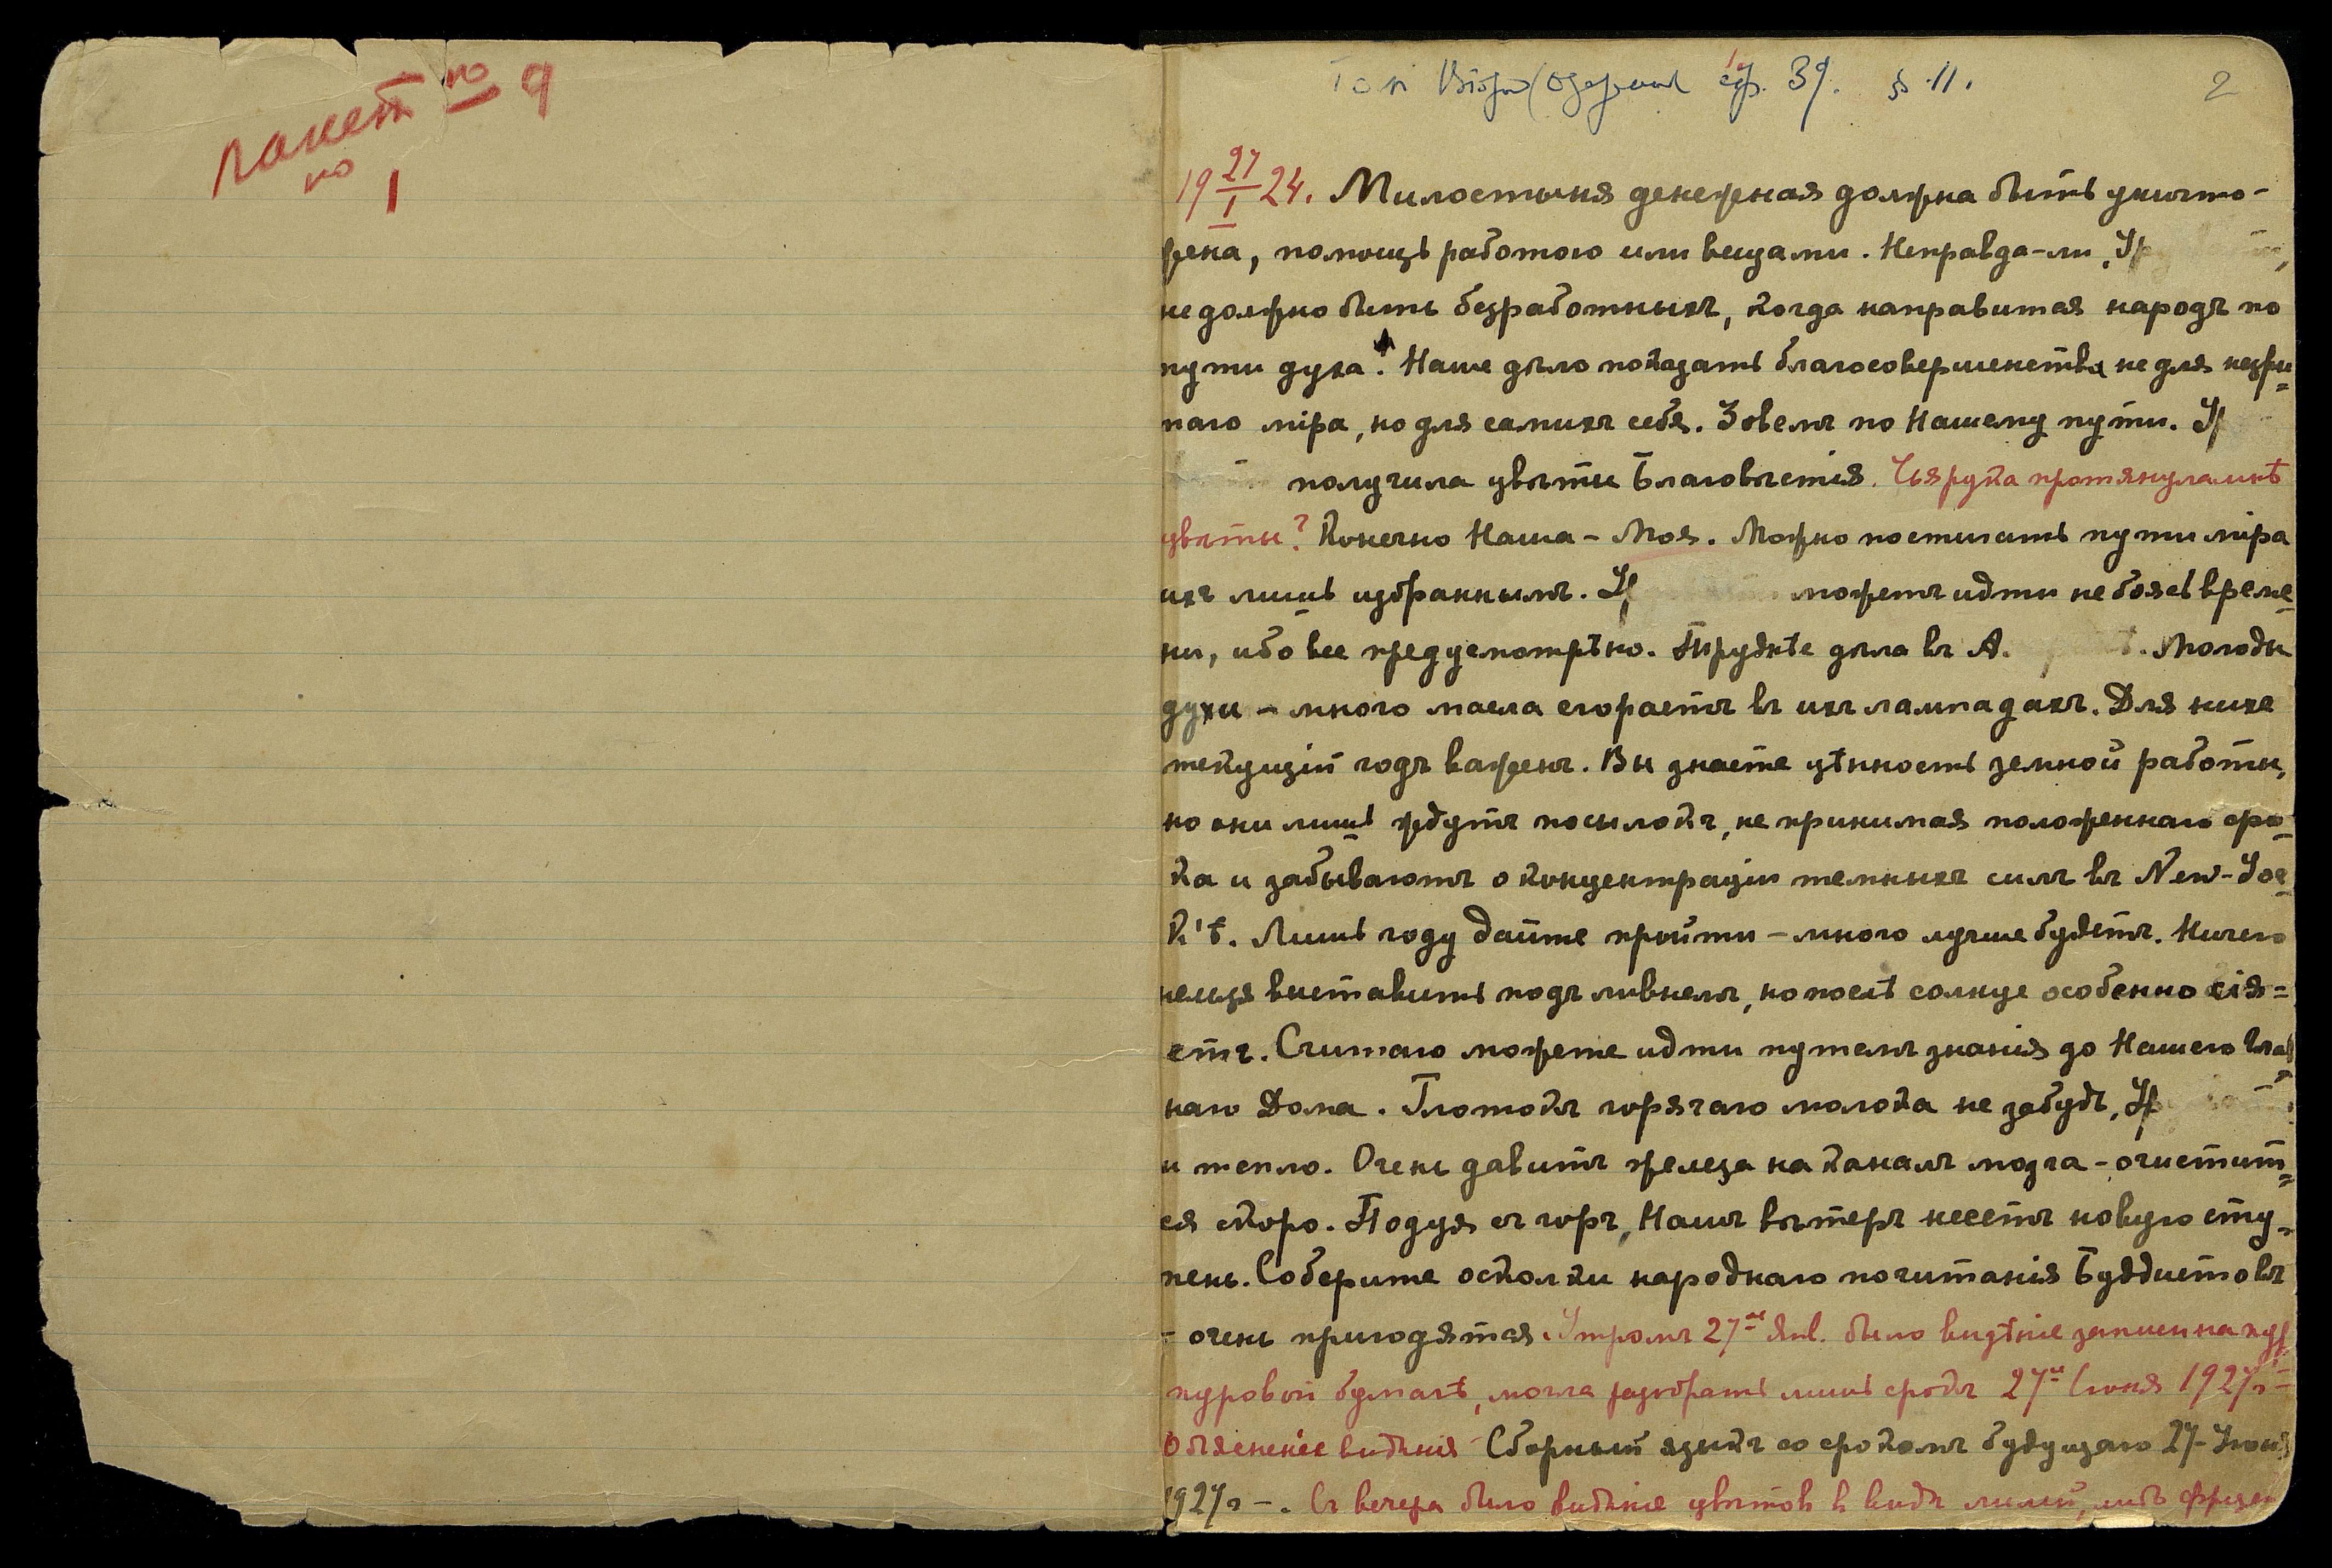 пакет № 9
но 1
стр. 39. § 11.
2
19 27/I 24. Милостыня денежная должна быть уничто-
жена, помощь работою или вещами. Неправда-ли, Ур
не должно быть безработныхъ, когда направится народъ по
пути духа? Наше дѣло показать благосовершенства не для незри=
маго мiра, но для самихъ себя. Зовемъ по Нашему пути. Ур
получила цвѣты Благовѣстiя. Чья рука протянула мнѣ
цвѣты? Конечно Наша – Моя. Можно постигать пути мiра
ихъ лишь избраннымъ. Ур можетъ идти не боясь време-
ни, ибо все предусмотрѣно. Труднѣе дѣла въ А. Молоды
духи – много масла сгораетъ въ ихъ лампадахъ. Для нихъ
текущiй годъ важенъ. Вы знаете цѣнность земной работы,
но они лишь ждутъ посылокъ, не принимая положеннаго сро-
ка и забываютъ о концентрацiи темныхъ силъ въ New-Yor-
k'ѣ. Лишь году дайте пройти – много лучше будетъ. Ничего
нельзя выставить подъ ливнемъ, но послѣ солнце особенно сiя=
етъ. Считаю можете идти путемъ знанiя до Нашего Глав
наго Дома. Глотокъ горячаго молока не забудь, Ур
и тепло. Очень давитъ железа на каналъ мозга – очистит=
ся скоро. Подуя съ горъ, Нашъ вѣтеръ несетъ новую сту=
пень. Соберите осколки народнаго почитанiя Буддистовъ
– очень пригодятся. Утромъ 27го Янв. было видѣнiе записи на пур
пуровой бумагѣ, могла разобрать лишь срокъ 27го Iюня 1927г. –
Объясненiе видѣнiя Сборный языкъ со срокомъ будущаго 27-Iюня
1927г –. Съ вечера было видѣнiе цвѣтовъ въ видѣ лилiй, либо